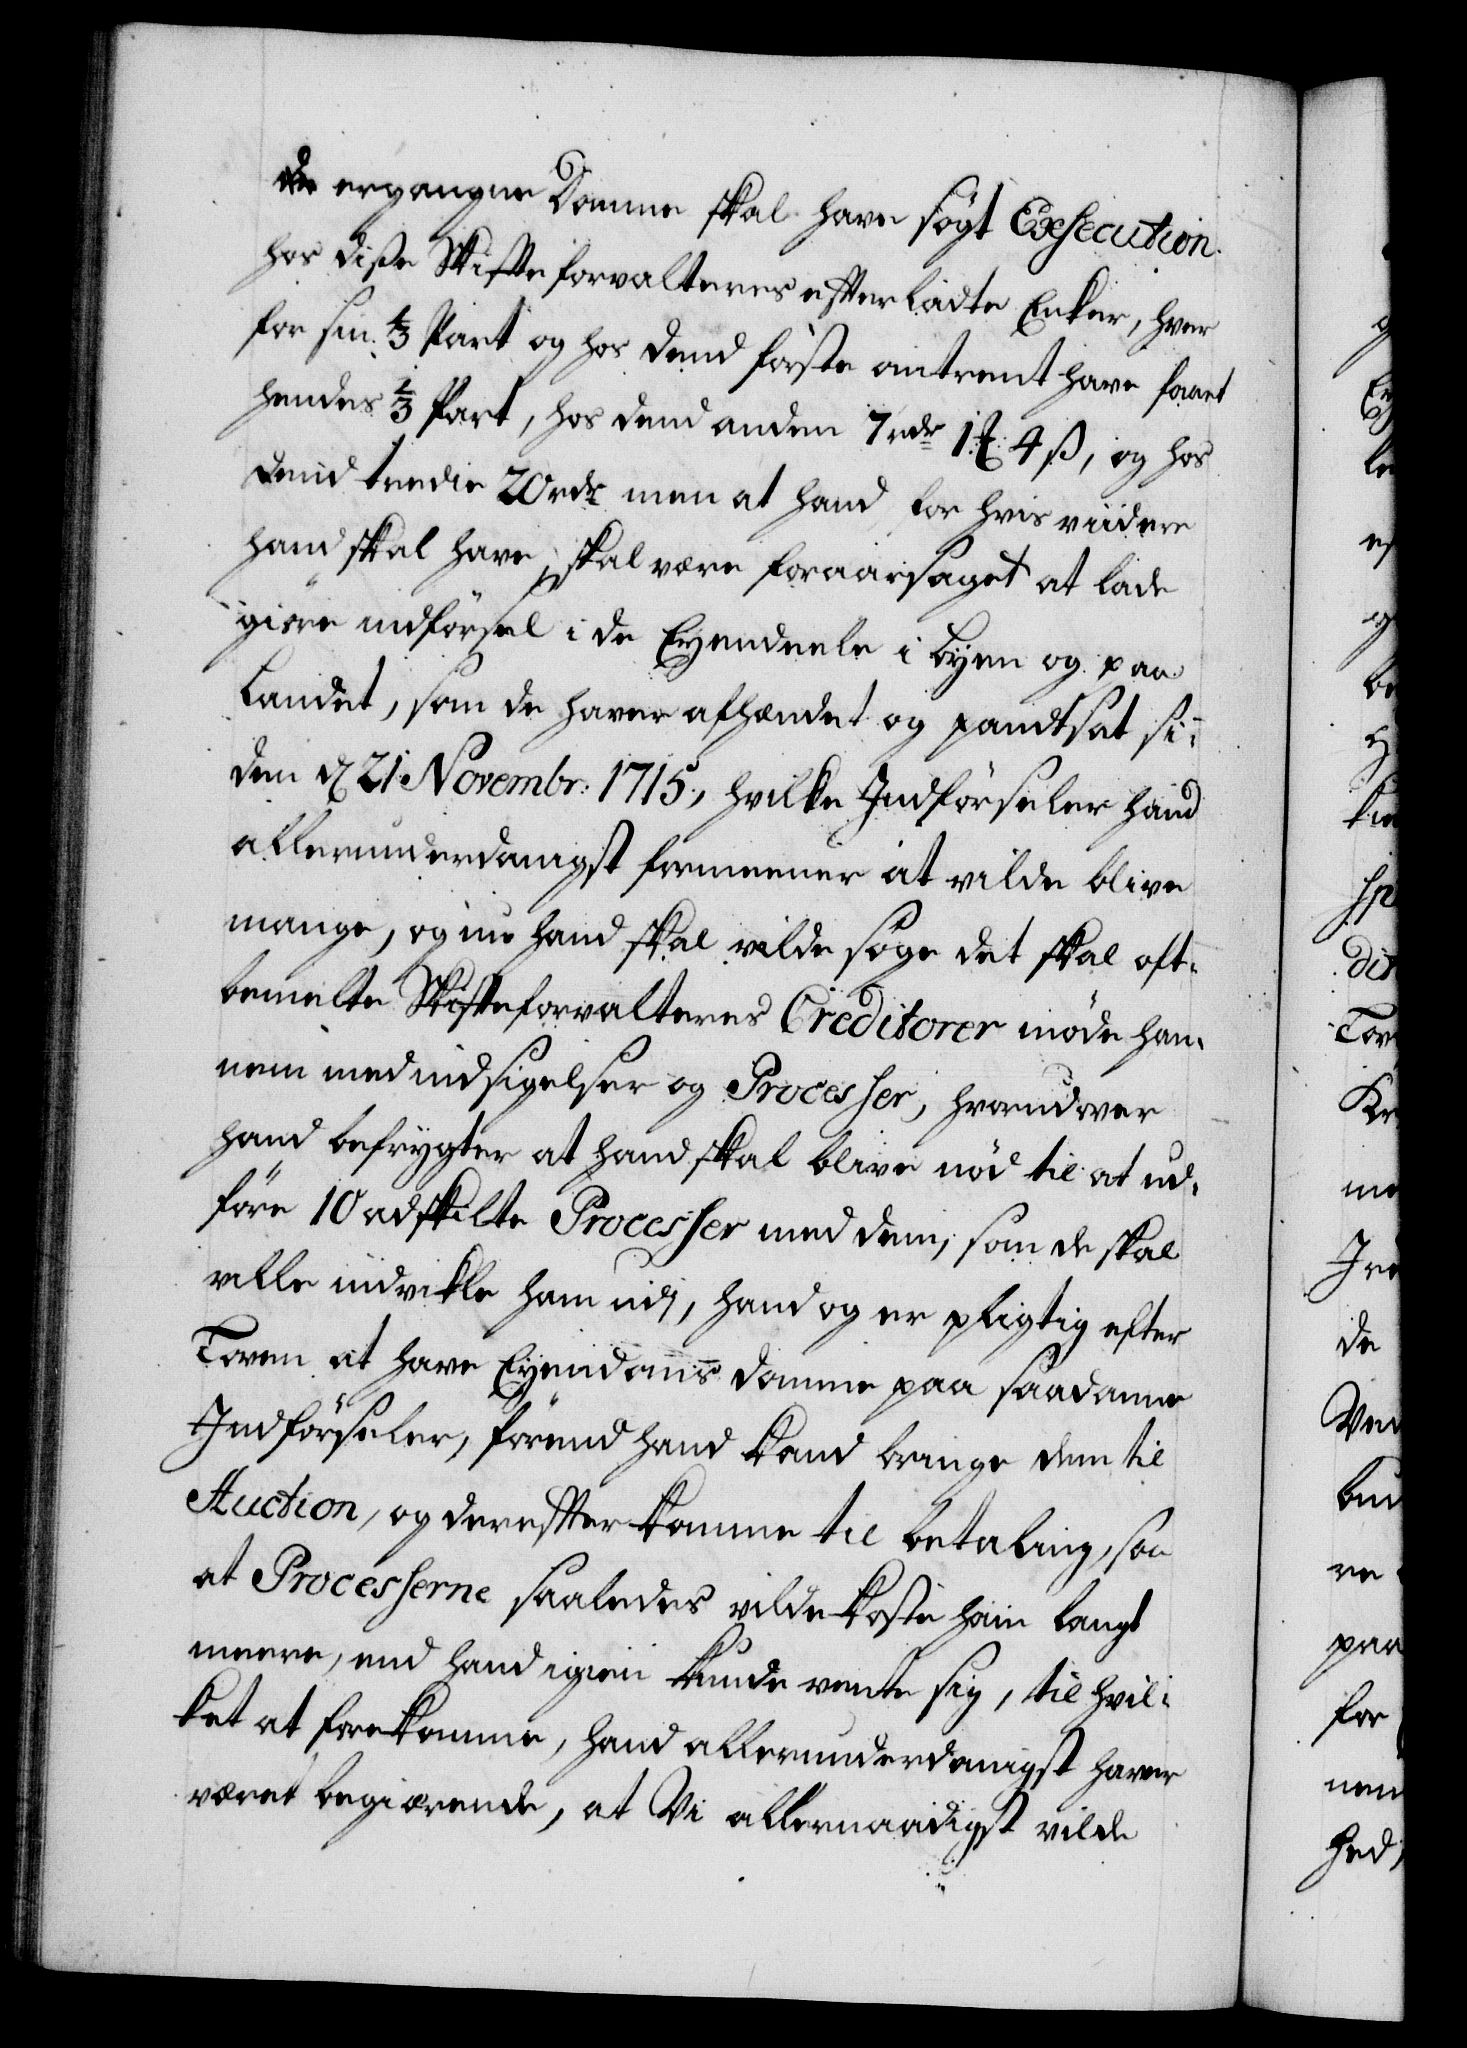 de ergangne Domme skal have søgt Exsecution
hos diße Skifteforvalteres efterladte Enker, hver
for sin ⅓ Part og hos dend første omtrent have faaet
hendes ⅓ Part, hos dend anden 7 rdr 1 ℔ 4 ß, og hos
dend tredie 20 rdr men at hand for hvis viidere
hand skal have, skal være foraarsaget at lade
giøre indførsel i de Eyendeele i byen og paa
Landet, som de haver afhændet og pandtsat si-
den d 21 Novembr: 1715, hvilke Indførseler hand
allerunderdanigst formeener at vilde blive
mange, og nu hand skal vilde søge det skal oft-
bemelte Skifteforvalteres Creditorer møde han-
nem med indsigelser og Processer, hvorudover
hand befrygter at hand skal blive nød til at ud-
føre 10 adskilte Processer med dem, som de skal
ville indvikle ham udj, hand og er pligtig efter
Loven at have Eyendoms domme paa saadanne
Indførseler, førend hand kand bringe dem til
Auction, og derefter komme til betaling, saa
at Processerne saaledes vilde koste ham langt
meere, end hand igien kunde vente sig, til hvil-
ket at forekomme, hand allerunderdanigst haver
været begiærende, at Vi allernaadigst vilde